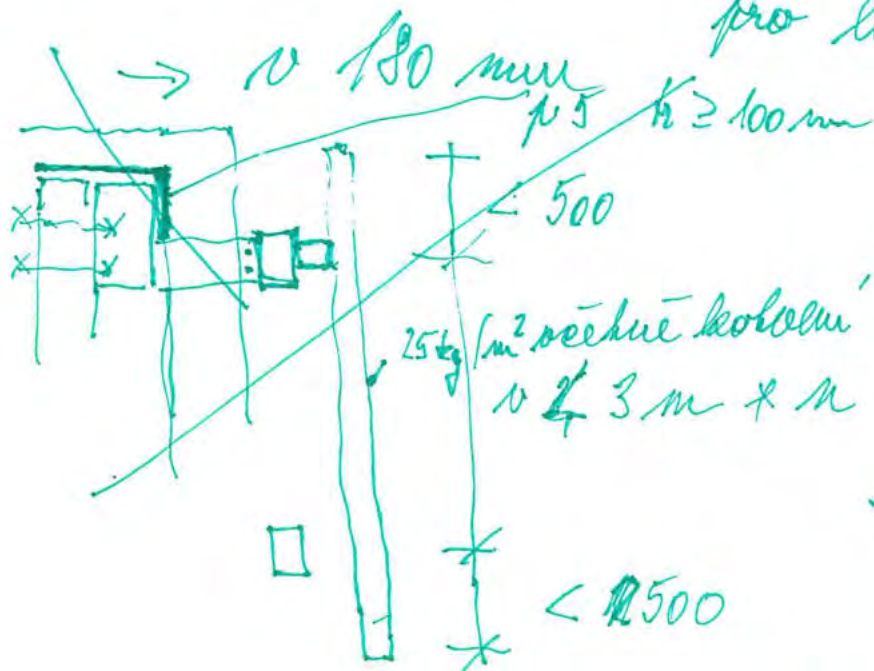 pro
→ v 180 mm
h ≥ 100 mm
< 500
25 kg/m² včetně kotvení
v 3 m * n
< 500